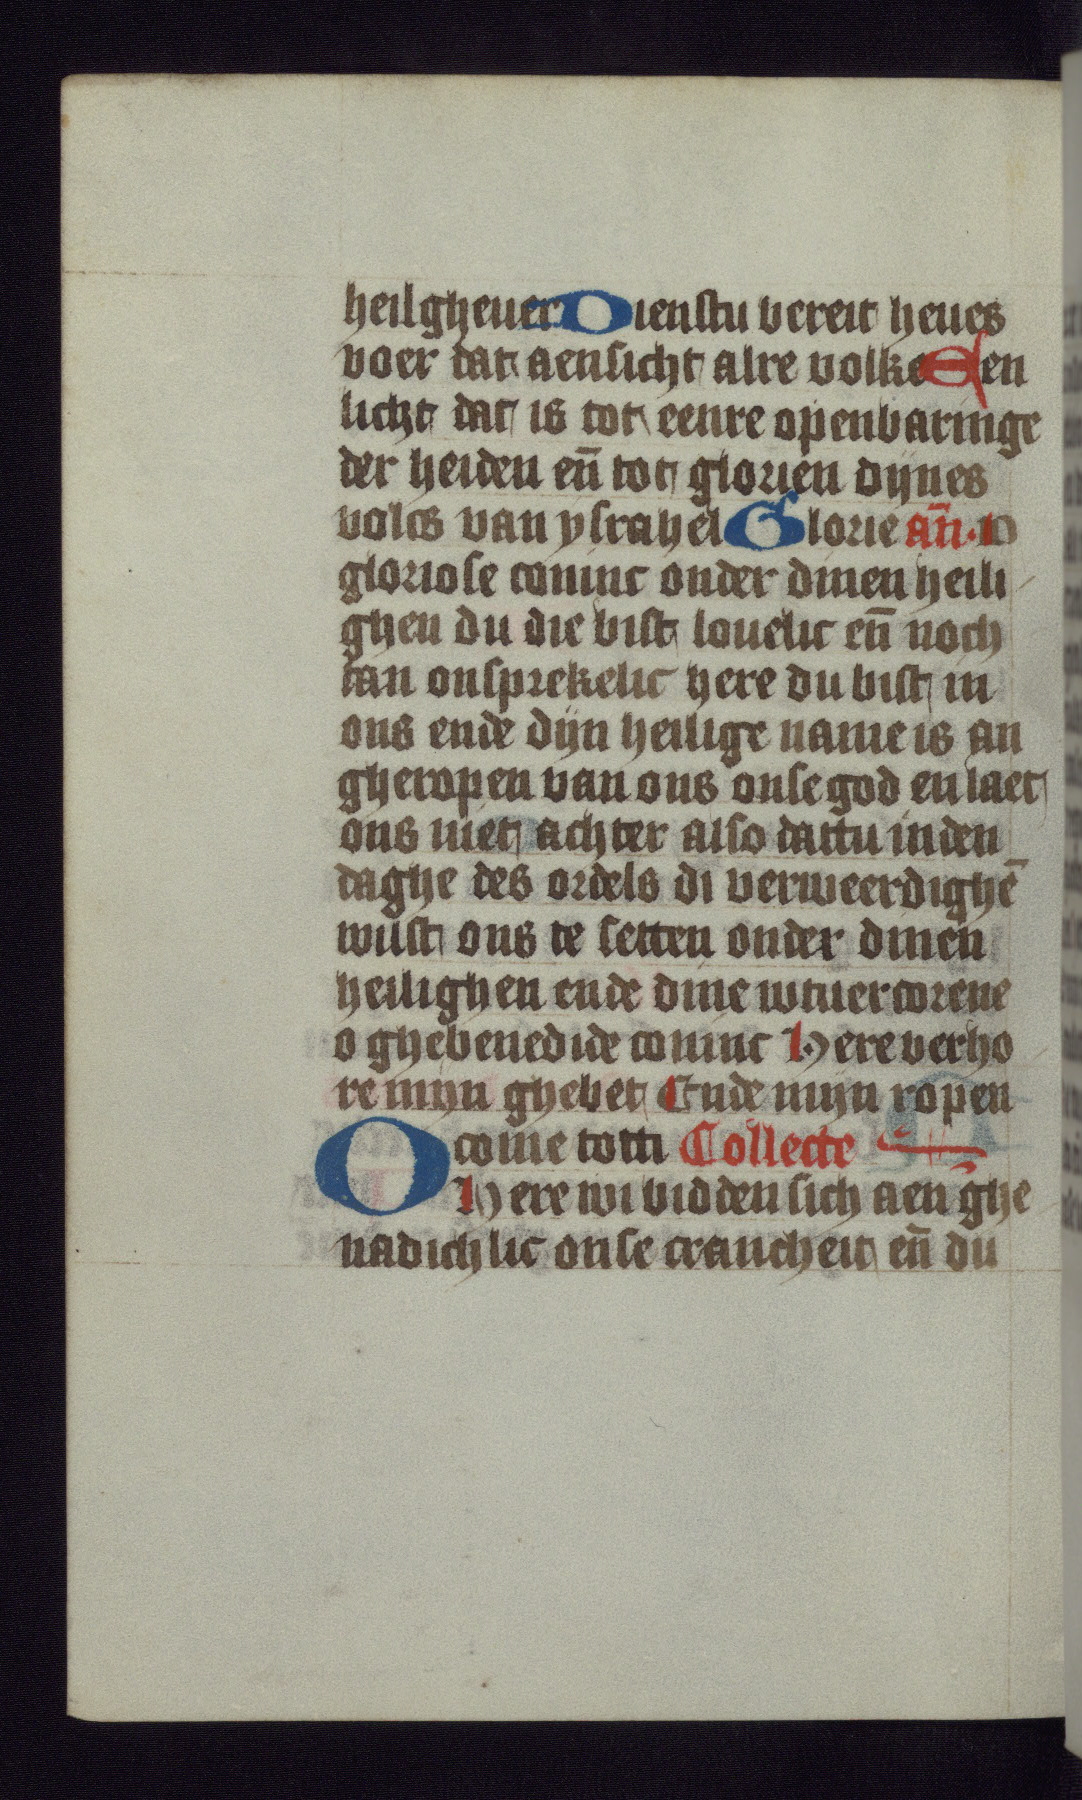 heilgheuer Dienstu bereit heues
voer dat aensicht alre volke Een
licht dat is tot eenre openbaringe
der heiden eñ tot glorien dijnes
volcs van ysrahel Glorie añ. O
gloriose coninc onder dinen heili
ghen du die bist louelic eñ noch
tan onsprekelic here du bist in
ons ende dijn heilige name is an
gheropen van ons onse god en laet
ons niet achter also dattu in den
daghe des ordels di verweerdighē
wilst ons te setten onder dinen
heilighen ende dine wtuercorene
o ghebenedide coninc Here verho
re mijn ghebet Ende mijn ropen
come totti Collecte
O Here wi bidden sich aen ghe
nadichlic onse crancheit eñ du